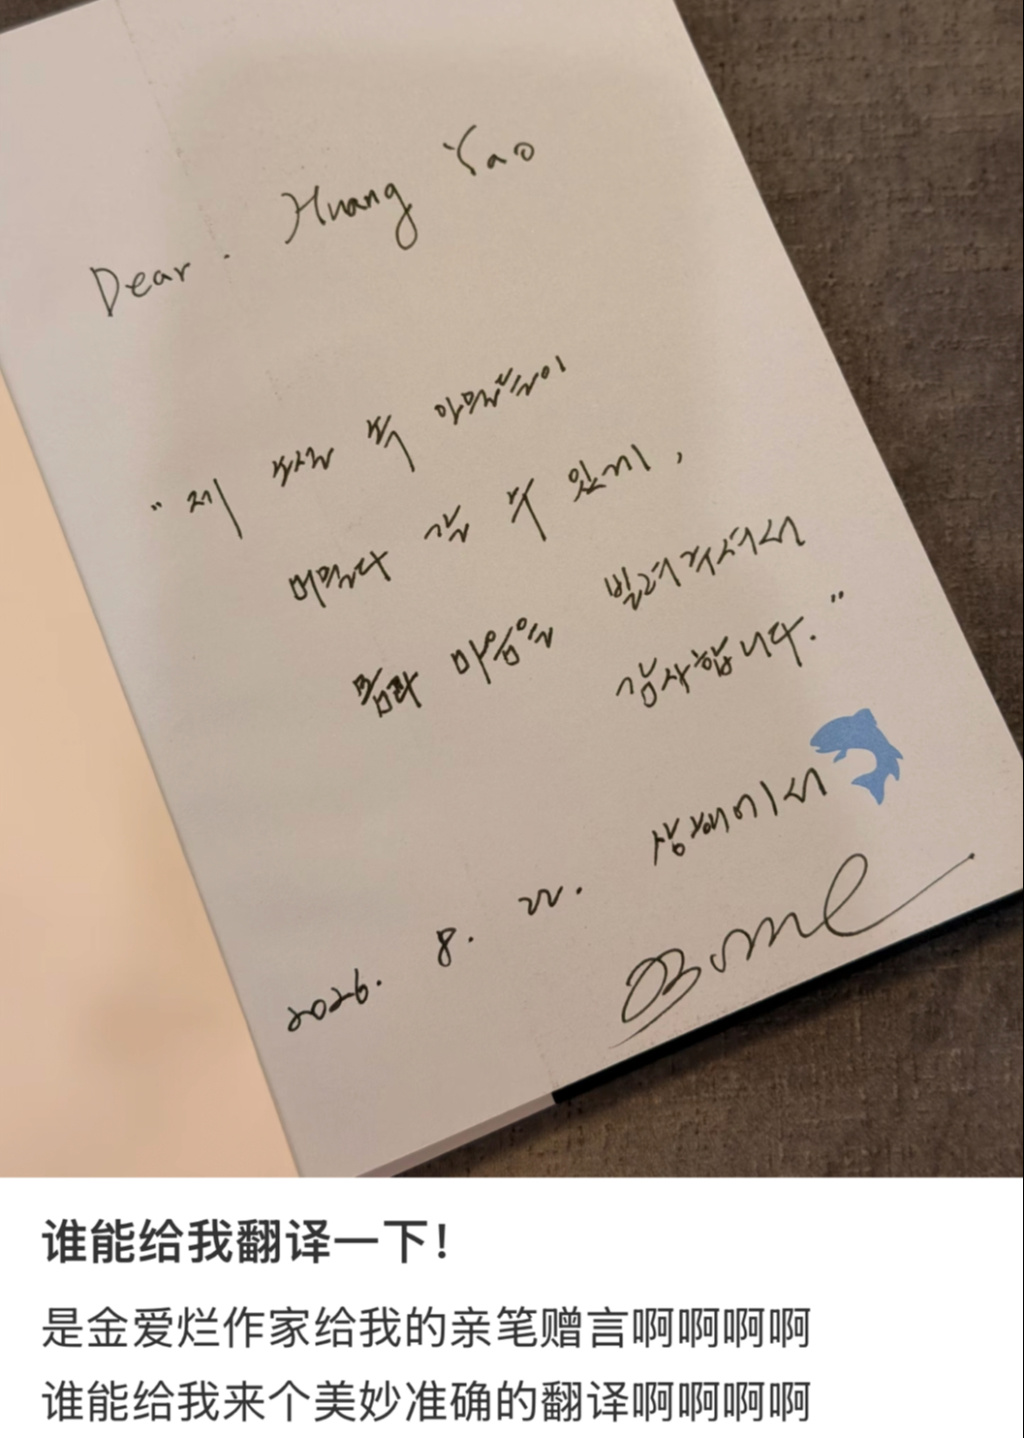 Dear. Huang Yao
"제 소설 속 인물들이
머물다 갈 수 있게,
몸과 마음을 빌려주셔서
감사합니다."
2026. 8. 22. 상해에서
谁能给我翻译一下！
是金爱烂作家给我的亲笔赠言啊啊啊啊
谁能给我来个美妙准确的翻译啊啊啊啊